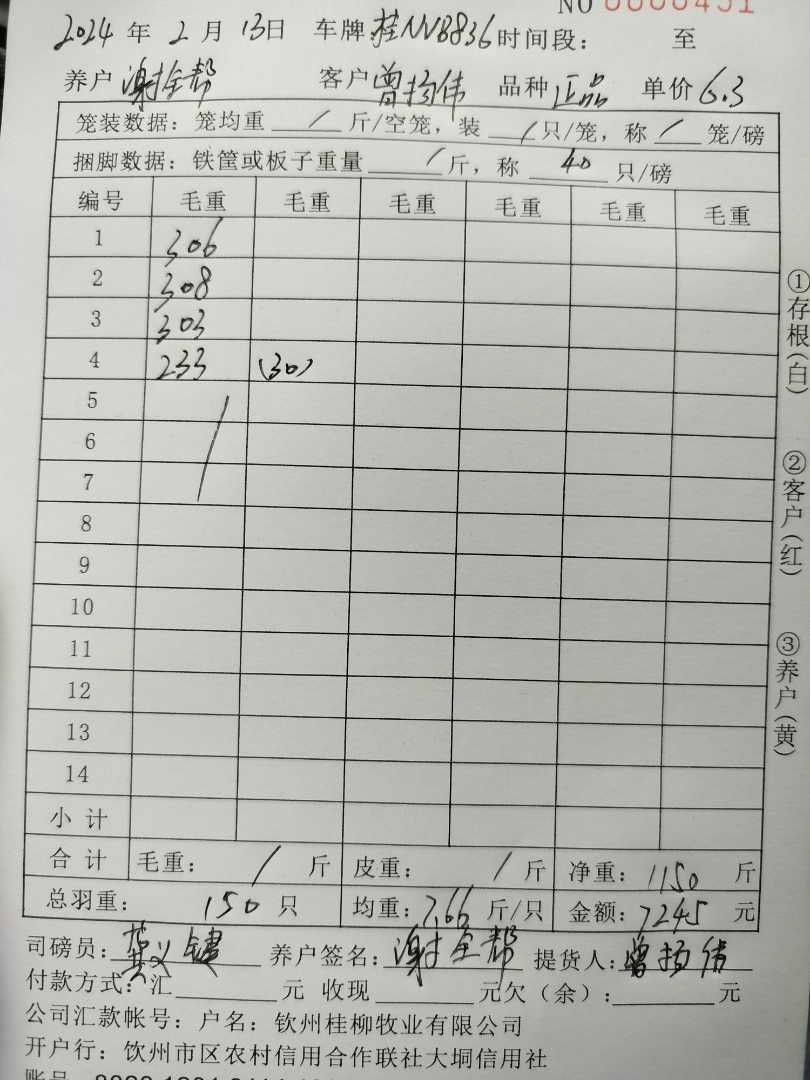 NO 0000451
2024 年 2 月 13日 车牌:桂NNB836 时间段: 至
养户 谢全帮 客户 曾扬伟 品种 正品 单价 6.3
笼装数据: 笼均重 / 斤/空笼, 装 / 只/笼, 称 / 笼/磅
捆脚数据: 铁筐或板子重量 / 斤, 称 40 只/磅
编号 毛重 毛重 毛重 毛重 毛重 毛重
1 306
2 308
3 303
4 233 (30)
5
6
7
8
9
10
11
12
13
14
小 计
合 计 毛重: / 斤 皮重: / 斤 净重: 1150 斤
总羽重: 150 只 均重: 7.66 斤/只 金额: 7245 元
司磅员: 键 养户签名: 谢全帮 提货人: 曾扬伟
付款方式: 汇 元 收现 元欠(余): 元
公司汇款帐号: 户名: 钦州桂柳牧业有限公司
开户行: 钦州市区农村信用合作联社大垌信用社
账号
①存根(白)
②客户(红)
③养户(黄)